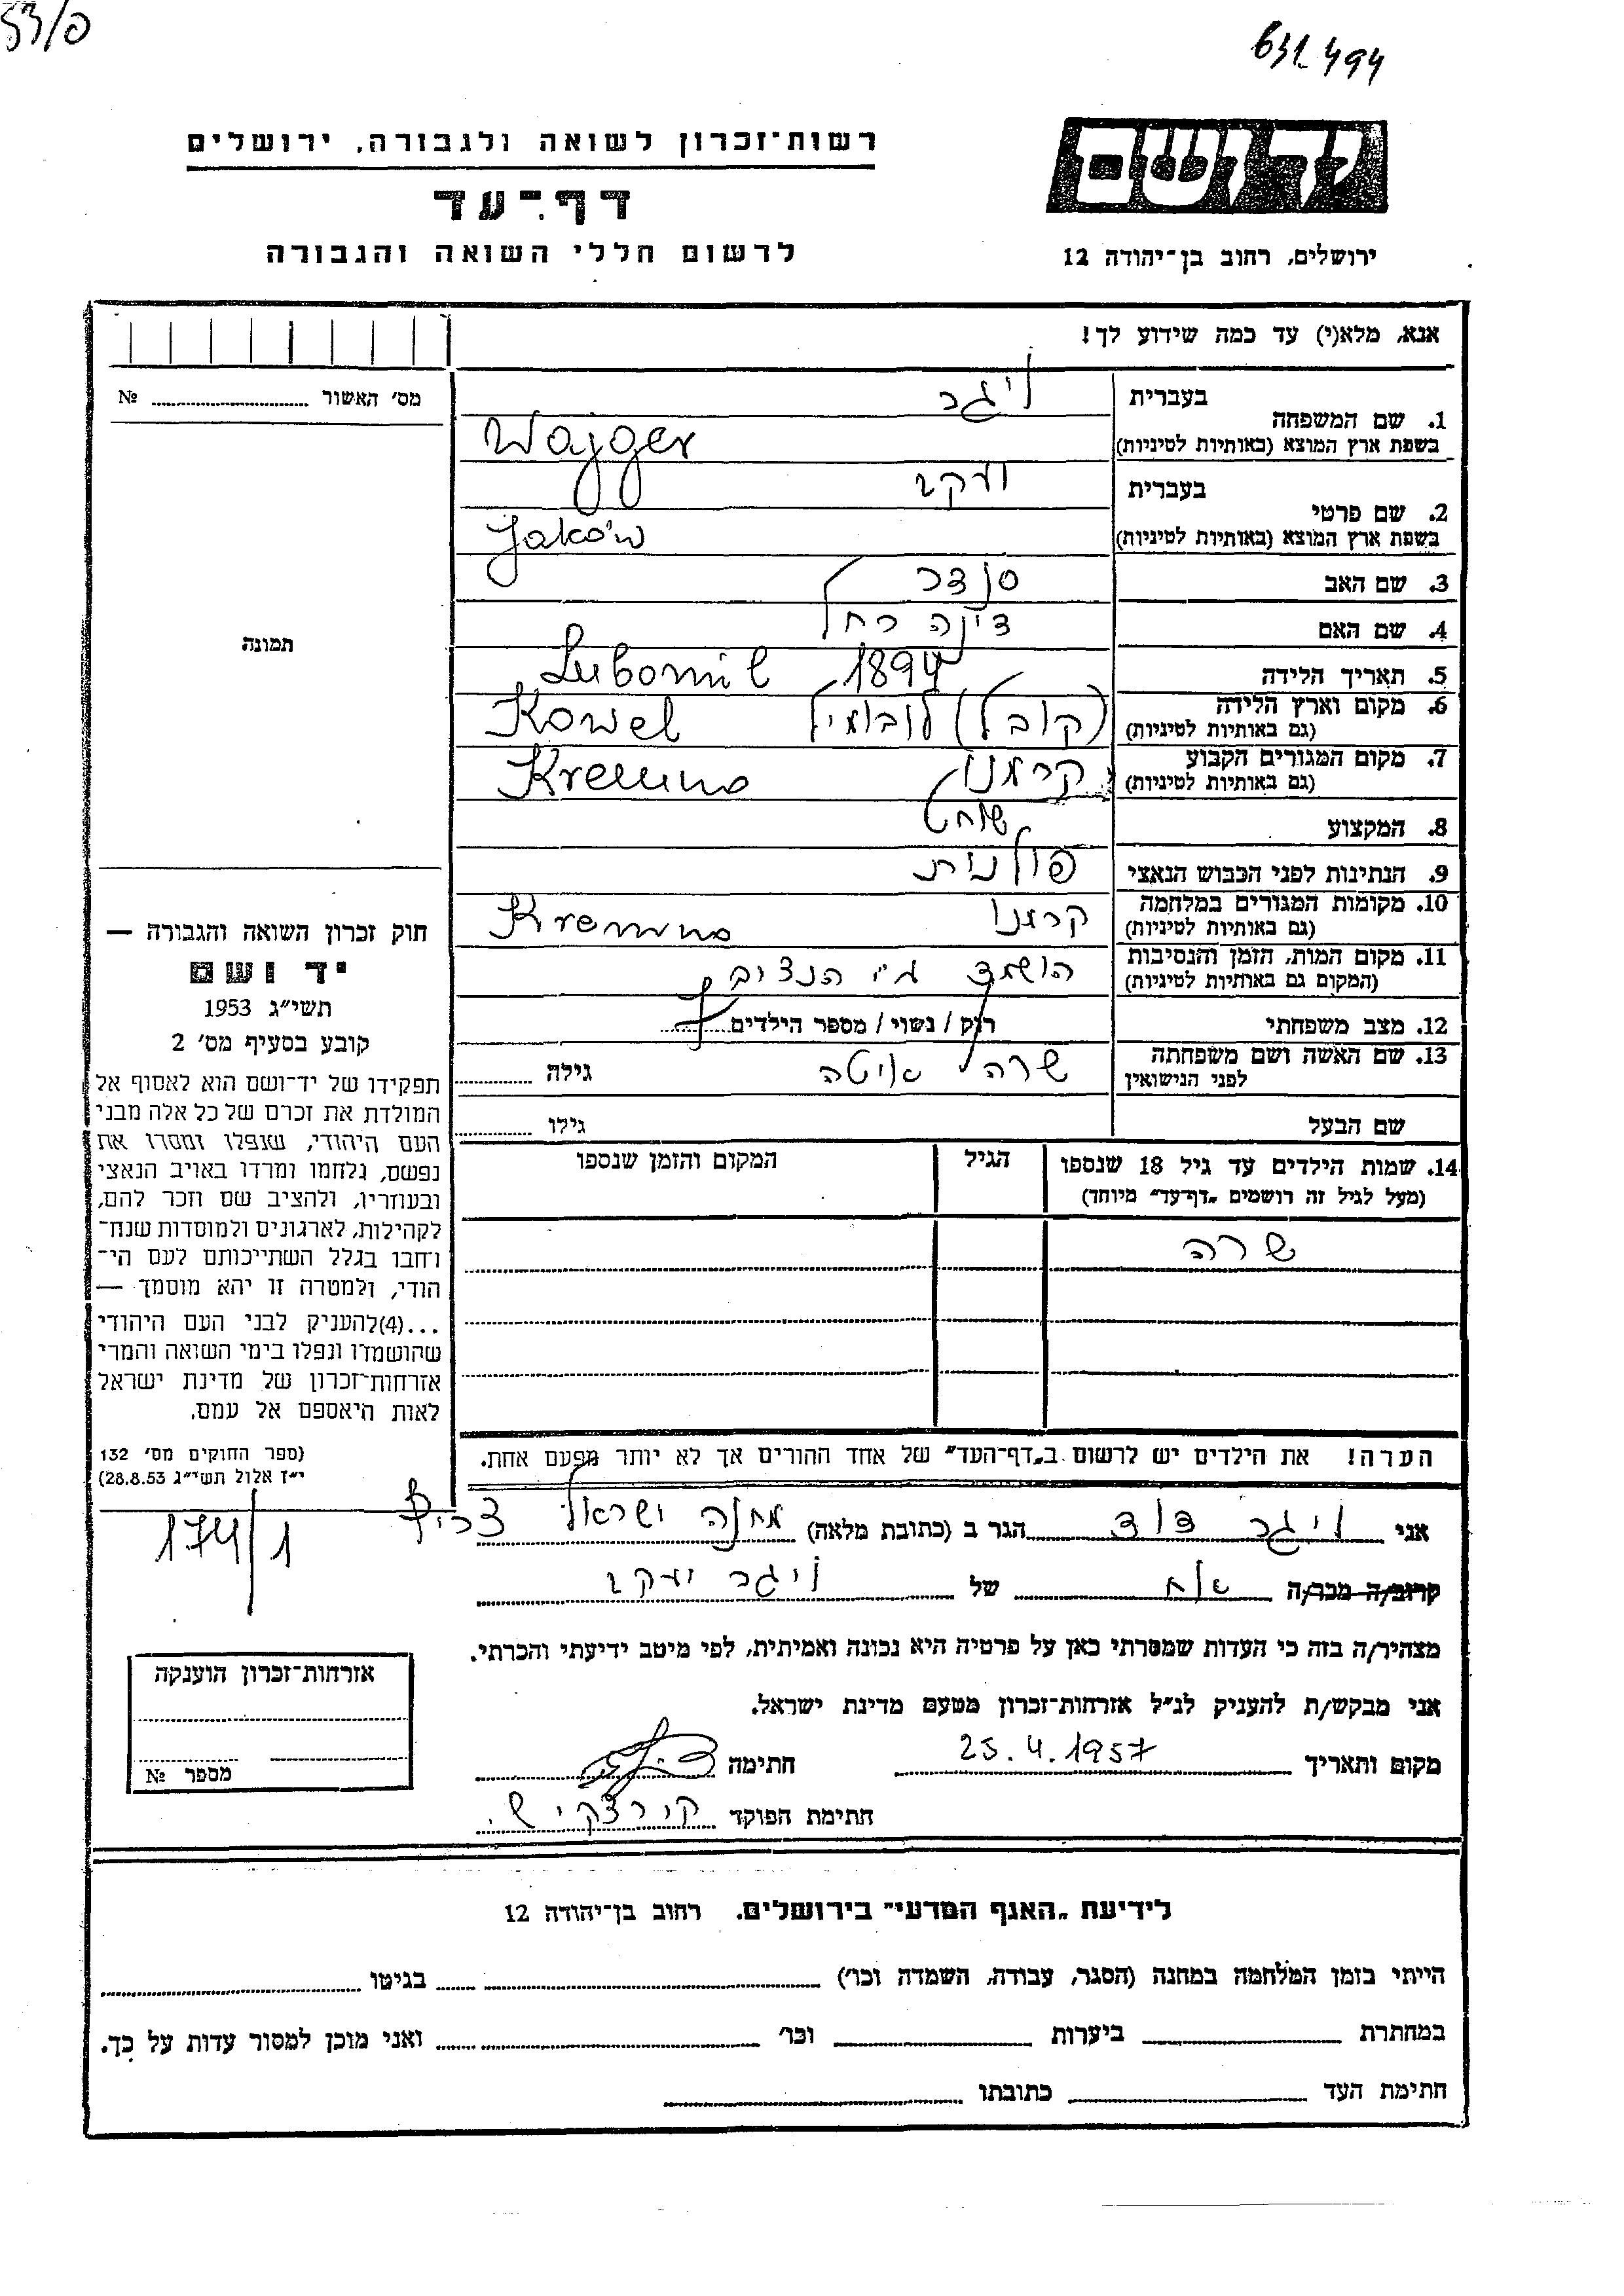 53/ס
631 494
רשות־זכרון לשואה ולגבורה, ירושלים
דף־עד
לרשום חללי השואה והגבורה
יד ושם
ירושלים, רחוב בן־יהודה 12
אנא, מלא(י) עד כמה שידוע לך!
מס׳ האשור № 
1. שם המשפחה
בעברית ויגר
בשפת ארץ המוצא (באותיות לטיניות) Wajger
2. שם פרטי
בעברית יעקב
בשפת ארץ המוצא (באותיות לטיניות) Jaków
3. שם האב סנדר
4. שם האם דינה רחל
5. תאריך הלידה 1894 Lubomil
6. מקום וארץ הלידה
(גם באותיות לטיניות) (קובל) לובומיל Kowel
7. מקום המגורים הקבוע
(גם באותיות לטיניות) קרמנו Kremno
8. המקצוע שוחט
9. הנתינות לפני הכבוש הנאצי פולנית
10. מקומות המגורים במלחמה
(גם באותיות לטיניות) קרמנו Kremno
11. מקום המות, הזמן והנסיבות
(המקום גם באותיות לטיניות) הושמד ע״י הנצים
12. מצב משפחתי רוק / נשוי / מספר הילדים
13. שם האשה ושם משפחתה
לפני הנישואין שרה איטה גילה
שם הבעל גילו
14. שמות הילדים עד גיל 18 שנספו
(מעל לגיל זה רושמים „דף־עד״ מיוחד)
הגיל
המקום והזמן שנספו
שרה
הערה! את הילדים יש לרשום ב„דף־העד״ של אחד ההורים אך לא יותר מפעם אחת.
תמונה
חוק זכרון השואה והגבורה —
יד ושם
תשי״ג 1953
קובע בסעיף מס׳ 2
תפקידו של יד־ושם הוא לאסוף אל
המולדת את זכרם של כל אלה מבני
העם היהודי, שנפלו ומסרו את
נפשם, נלחמו ומרדו באויב הנאצי
ובעוזריו, ולהציב שם וזכר להם,
לקהילות, לארגונים ולמוסדות שנח־
רחבו בגלל השתייכותם לעם הי־
הודי, ולמטרה זו יהא מוסמך —
...(4)להעניק לבני העם היהודי
שהושמדו ונפלו בימי השואה והמרי
אזרחות־זכרון של מדינת ישראל
לאות היאספם אל עמם.
(ספר החוקים מס׳ 132
י״ז אלול תשי״ג 28.8.53)
אני ויגר דוד הגר ב (כתובת מלאה) מחנה ישראל צריף 174/1
קרוב/ה מכר/ה אח של ויגר יעקב
מצהיר/ה בזה כי העדות שמסרתי כאן על פרטיה היא נכונה ואמיתית, לפי מיטב ידיעתי והכרתי.
אני מבקש/ת להעניק לנ״ל אזרחות־זכרון מטעם מדינת ישראל.
מקום ותאריך 25.4.1957 חתימה
חתימת הפוקד קורצקי ש.
אזרחות־זכרון הוענקה
מספר №
לידיעת „האגף המדעי״ בירושלים. רחוב בן־יהודה 12
הייתי בזמן המלחמה במחנה (הסגר, עבודה, השמדה וכו׳) בגיטו
במחתרת ביערות וכו׳ ואני מוכן למסור עדות על כך.
חתימת העד כתובתו